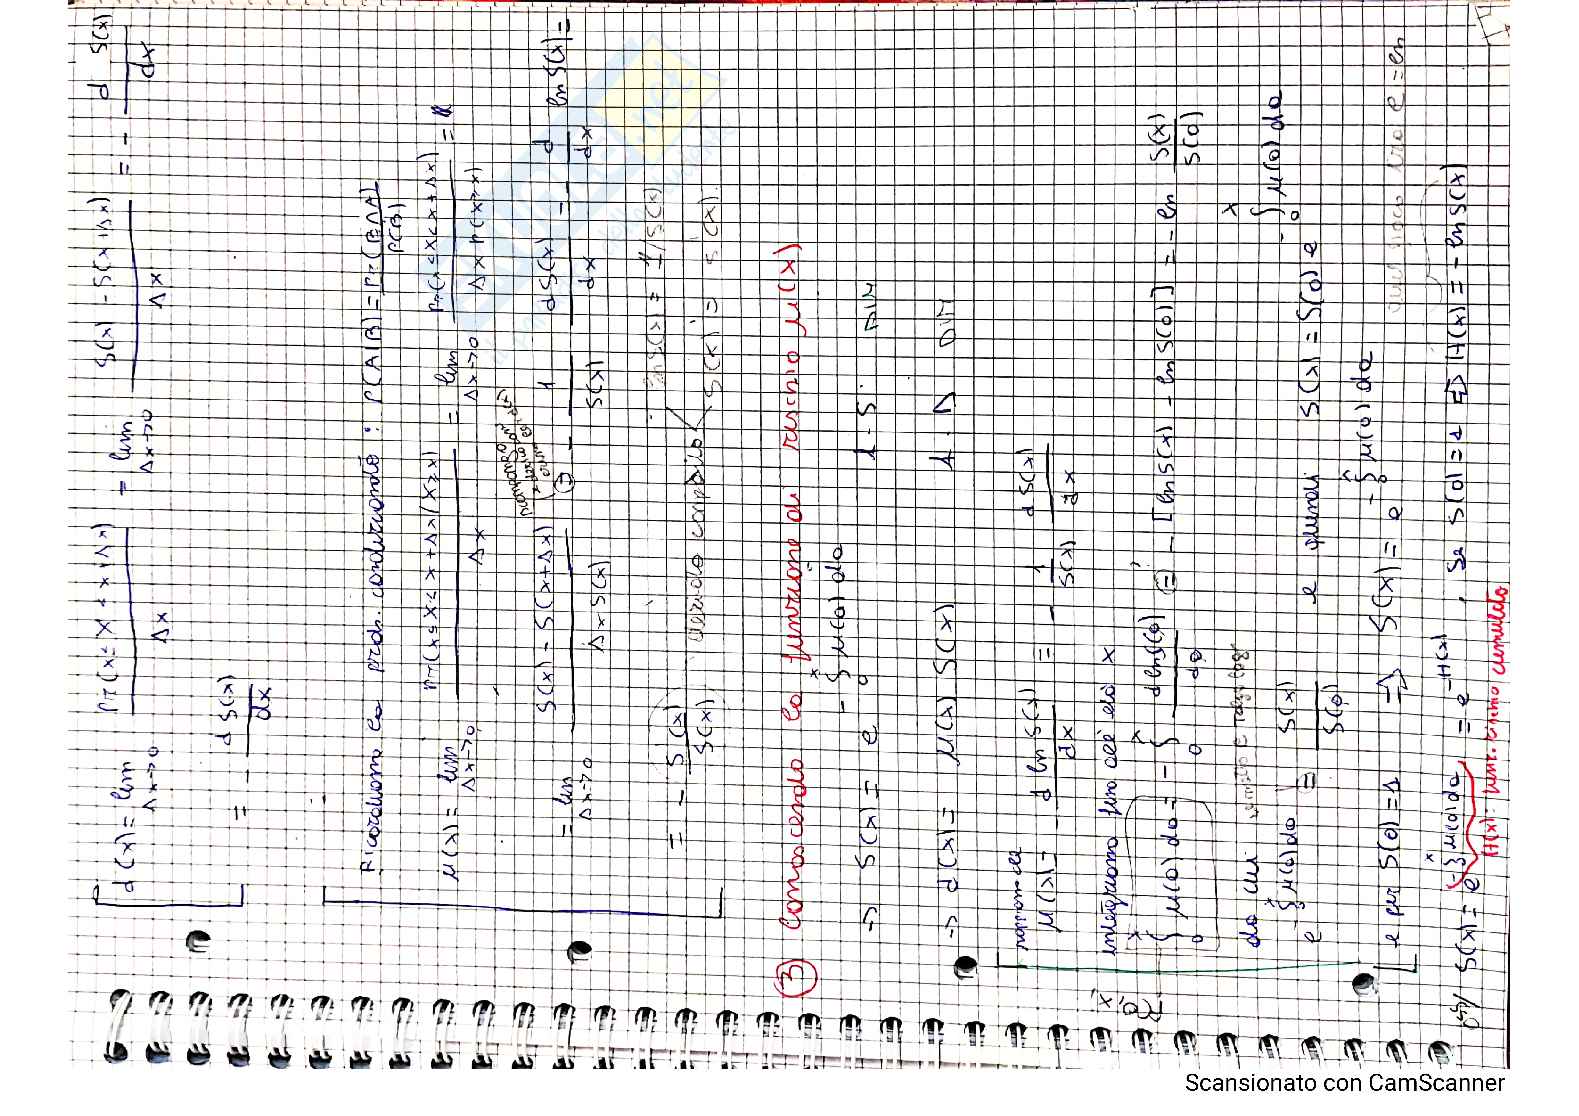 d(x) = lim Δx→0 Pr(x ≤ X < x+Δx) / Δx = lim Δx→0 S(x) - S(x+Δx) / Δx = - d S(x) / dx
= - dS(x) / dx
Ricordiamo la prob. condizionata : P(A|B) = Pr(B∩A) / P(B)
μ(x) = lim Δx→0 Pr(x ≤ X < x+Δx | X ≥ x) / Δx = lim Δx→0 Pr(x ≤ X < x+Δx) / Δx P(X ≥ x) =
= lim Δx→0 S(x) - S(x+Δx) / Δx S(x) = - 1 / S(x) dS(x) / dx = - d / dx ln S(x) =
= - S'(x) / S(x)
ln S(x) = 1/S(x)
S(x) = S'(x)
③ Conoscendo la funzione di rischio μ(x)
-> S(x) = e - ∫ 0 x μ(a) da 1. S. DIM
-> d(x) = μ(x) S(x) 1. D DIM
μ(x) = - d ln S(x) / dx = - 1 / S(x) dS(x) / dx
integriamo fino all'età x
∫ 0 x μ(a) da = - ∫ 0 x d ln S(a) / da da = - [ln S(x) - ln S(0)] = - ln S(x) / S(0)
da cui
e - ∫ 0 x μ(a) da = S(x) / S(0) e quindi S(x) = S(0) e - ∫ 0 x μ(a) da
e per S(0) = 1 => S(x) = e - ∫ 0 x μ(a) da
S(x) = e - ∫ 0 x μ(a) da = e -H(x) , se S(0) = 1 => H(x) = - ln S(x)
H(x): funz. rischio cumulato
Scansionato con CamScanner